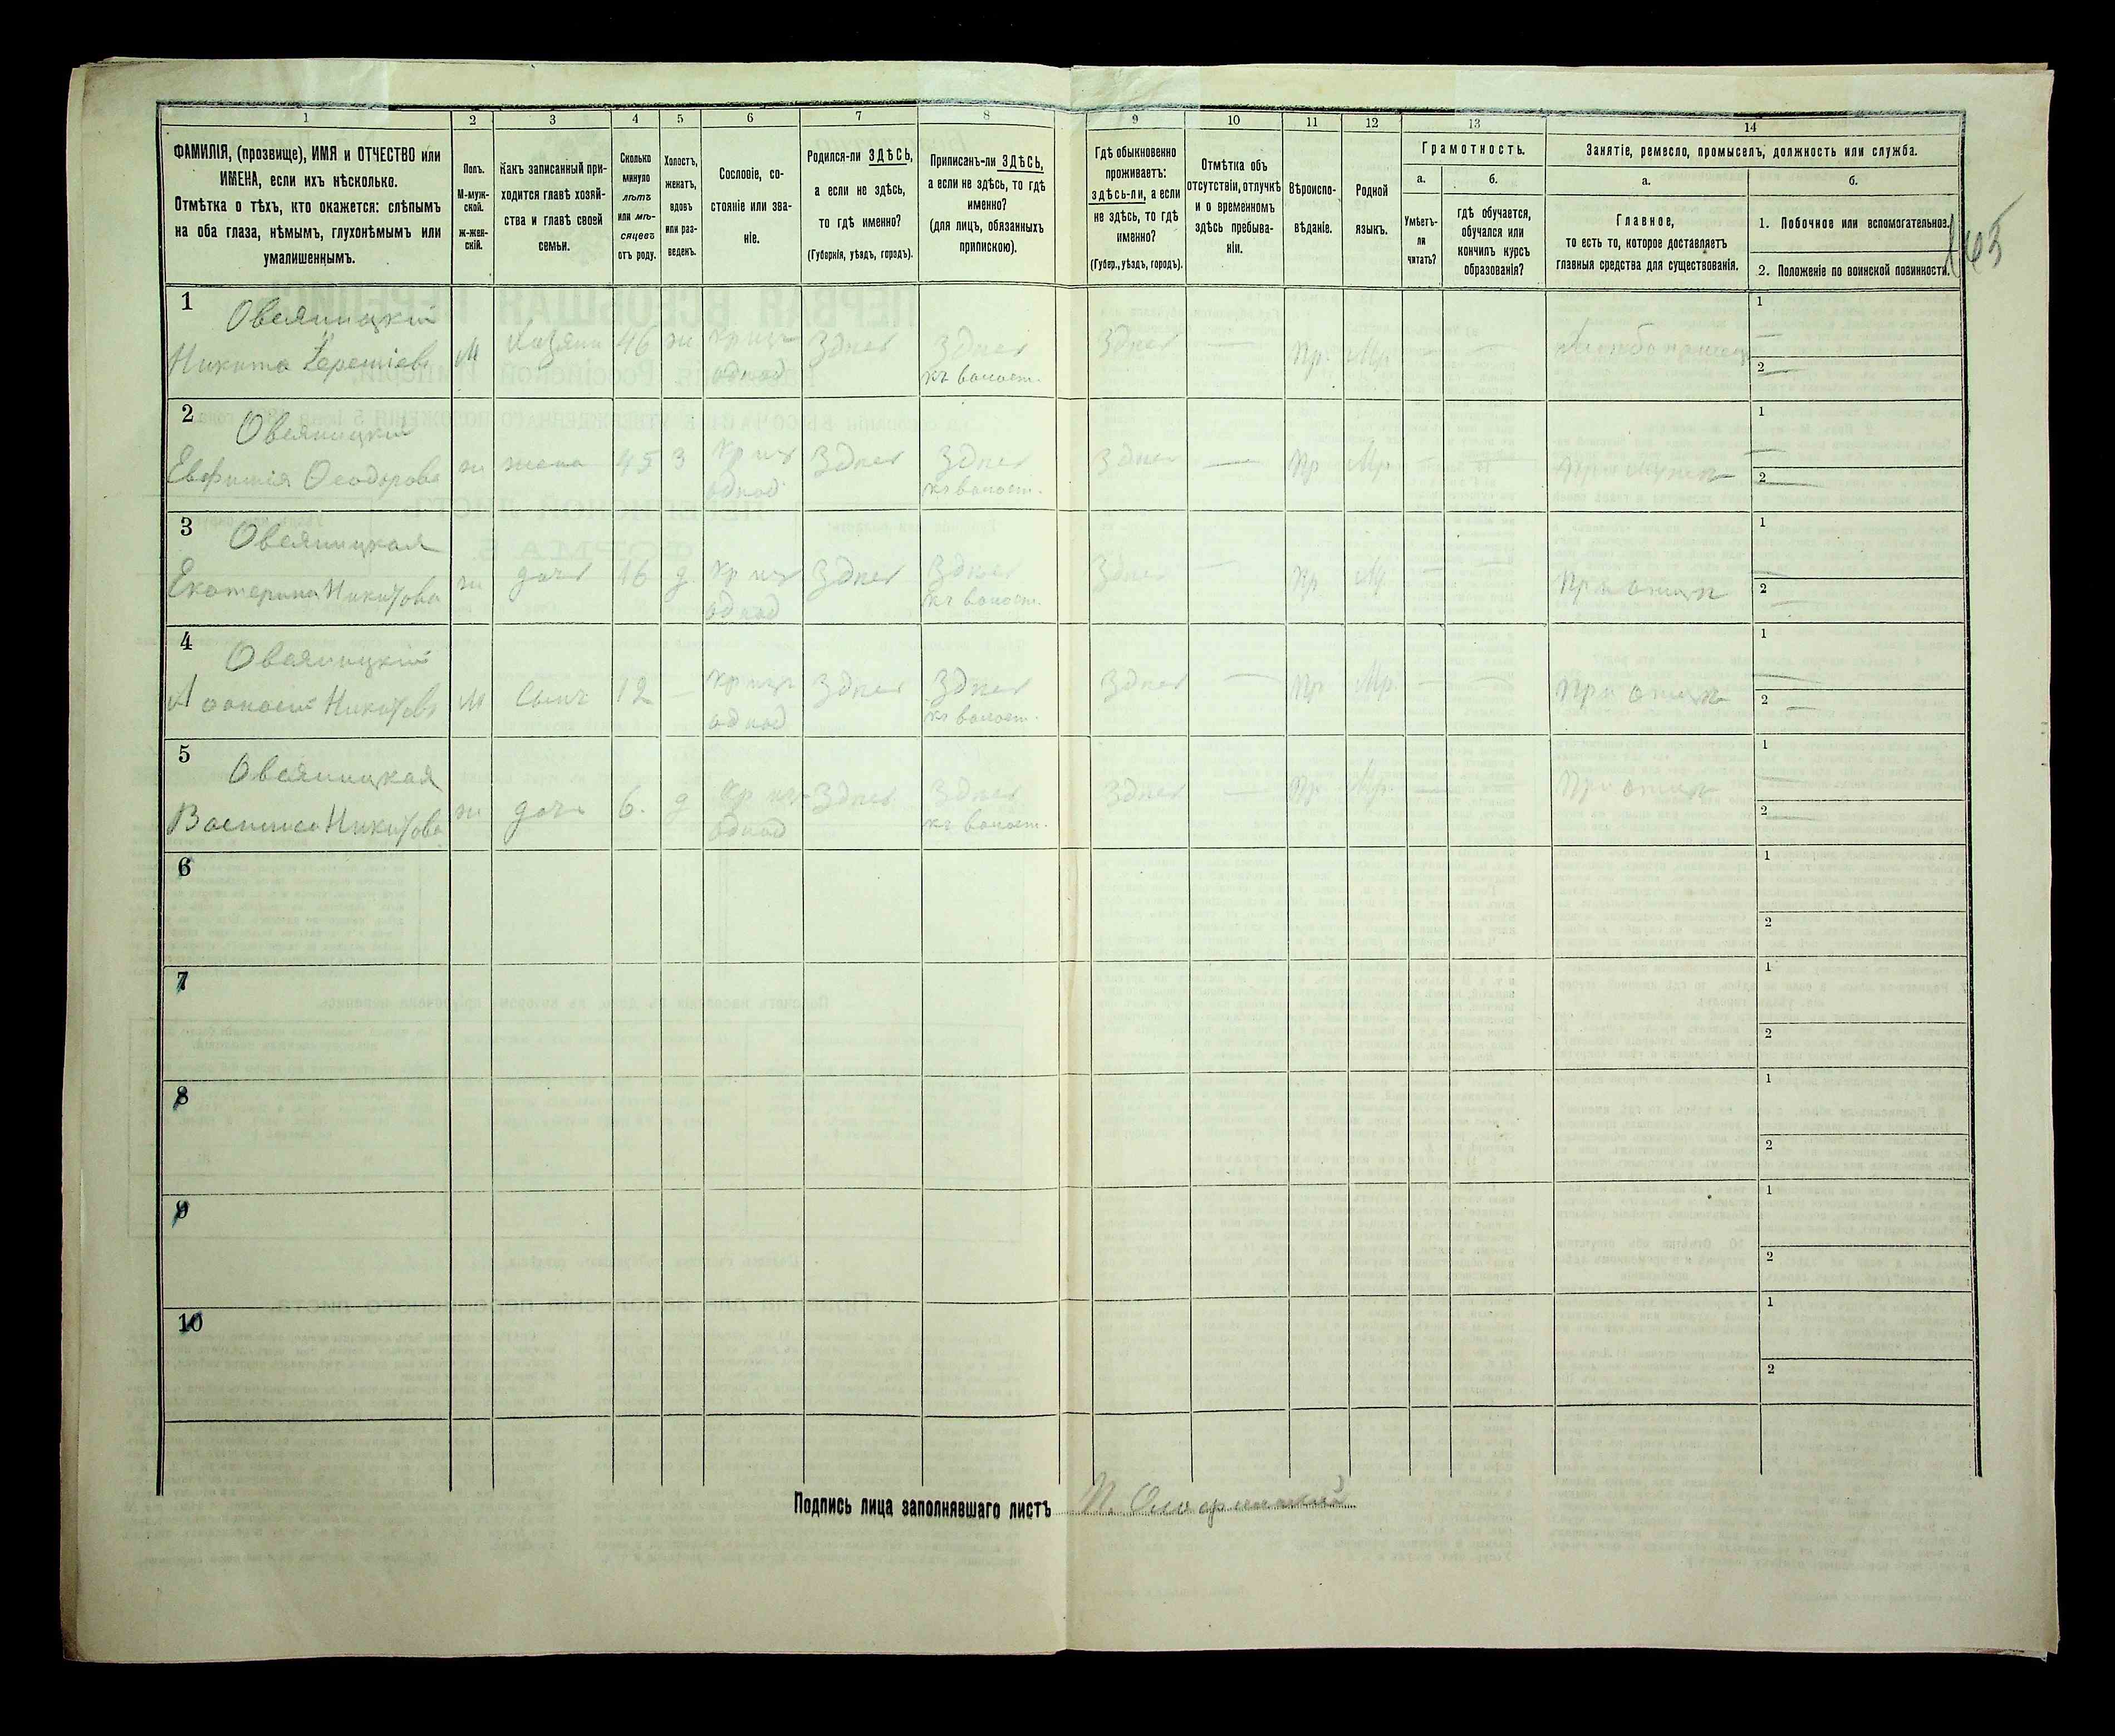 1 2 3 4 5 6 7 8 9 10 11 12 13 14
ФАМИЛІЯ, (прозвище), ИМЯ и ОТЧЕСТВО или
ИМЕНА, если ихъ нѣсколько.
Отмѣтка о тѣхъ, кто окажется: слѣпымъ
на оба глаза, нѣмымъ, глухонѣмымъ или
умалишеннымъ.
Полъ.
М-муж-
ской.
ж-жен-
скій.
Какъ записанный при-
ходится главѣ хозяй-
ства и главѣ своей
семьи.
Сколько
минуло
лѣтъ
или мѣ-
сяцевъ
отъ роду.
Холостъ,
женатъ,
вдовъ
или раз-
веденъ.
Сословіе, со-
стояніе или зва-
ніе.
Родился-ли ЗДѢСЬ,
а если не здѣсь,
то гдѣ именно?
(Губернія, уѣздъ, городъ).
Приписанъ-ли ЗДѢСЬ,
а если не здѣсь, то гдѣ
именно?
(для лицъ, обязанныхъ
припискою).
Гдѣ обыкновенно
проживаетъ:
здѣсь-ли, а если
не здѣсь, то гдѣ
именно?
(Губер., уѣздъ, городъ).
Отмѣтка объ
отсутствіи, отлучкѣ
и о временномъ
здѣсь пребыва-
ніи.
Вѣроиспо-
вѣданіе.
Родной
языкъ.
Грамотность.
а.
Умѣетъ-
ли
читать?
б.
гдѣ обучается,
обучался или
кончилъ курсъ
образованія?
Занятіе, ремесло, промыселъ, должность или служба.
а.
Главное,
то есть то, которое доставляетъ
главныя средства для существованія.
б.
1. Побочное или вспомогательное.
2. Положеніе по воинской повинности.
1
Никита
М 46 ж Здѣсь Здѣсь Здѣсь — Пр. Мр. — —
къ волост.
1 —
2 —
2
Евфимія Ѳеодорова
ж жена 45 З Здѣсь Здѣсь Здѣсь — Пр Мр — — При мужѣ
къ волост.
1 —
2 —
3
Екатерина Никитова
ж дочь 16 д Здѣсь Здѣсь Здѣсь — Пр Мр — — При отцѣ
къ волост.
1 —
2 —
4
Никитовъ
М сынъ 12 — Здѣсь Здѣсь Здѣсь — Пр Мр. — — При отцѣ
къ волост.
1 —
2 —
5
Василиса Никитова
ж дочь 6. д Здѣсь Здѣсь Здѣсь — Пр Мр — При отцѣ
къ волост.
1 —
2
6
1
2
7
1
2
8
1
2
9
1
2
10
1
2
Подпись лица заполнявшаго листъ